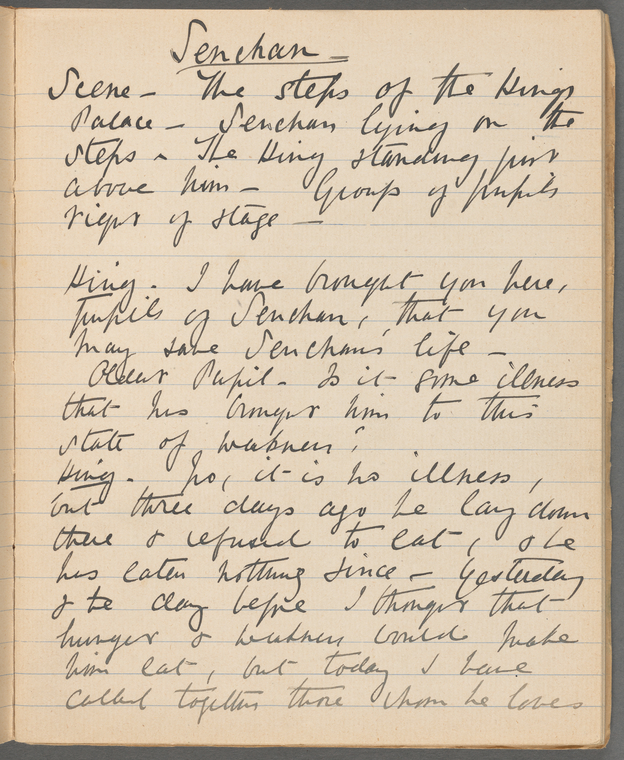 Senchan -
Scene - The steps of the Kings
Palace - Senchan lying on the
steps - The King standing just
above him - Group of pupils
right of stage -
King. I have brought you here,
pupils of Senchan, that you
may save Senchan's life -
Oldest Pupil - Is it some illness
that has brought him to this
state of weakness?
King. No, it is no illness,
but three days ago he lay down
there & refused to eat, & he
has eaten nothing since - Yesterday
& the day before I thought that
hunger & weakness would make
him eat, but today I have
called together those whom he loves